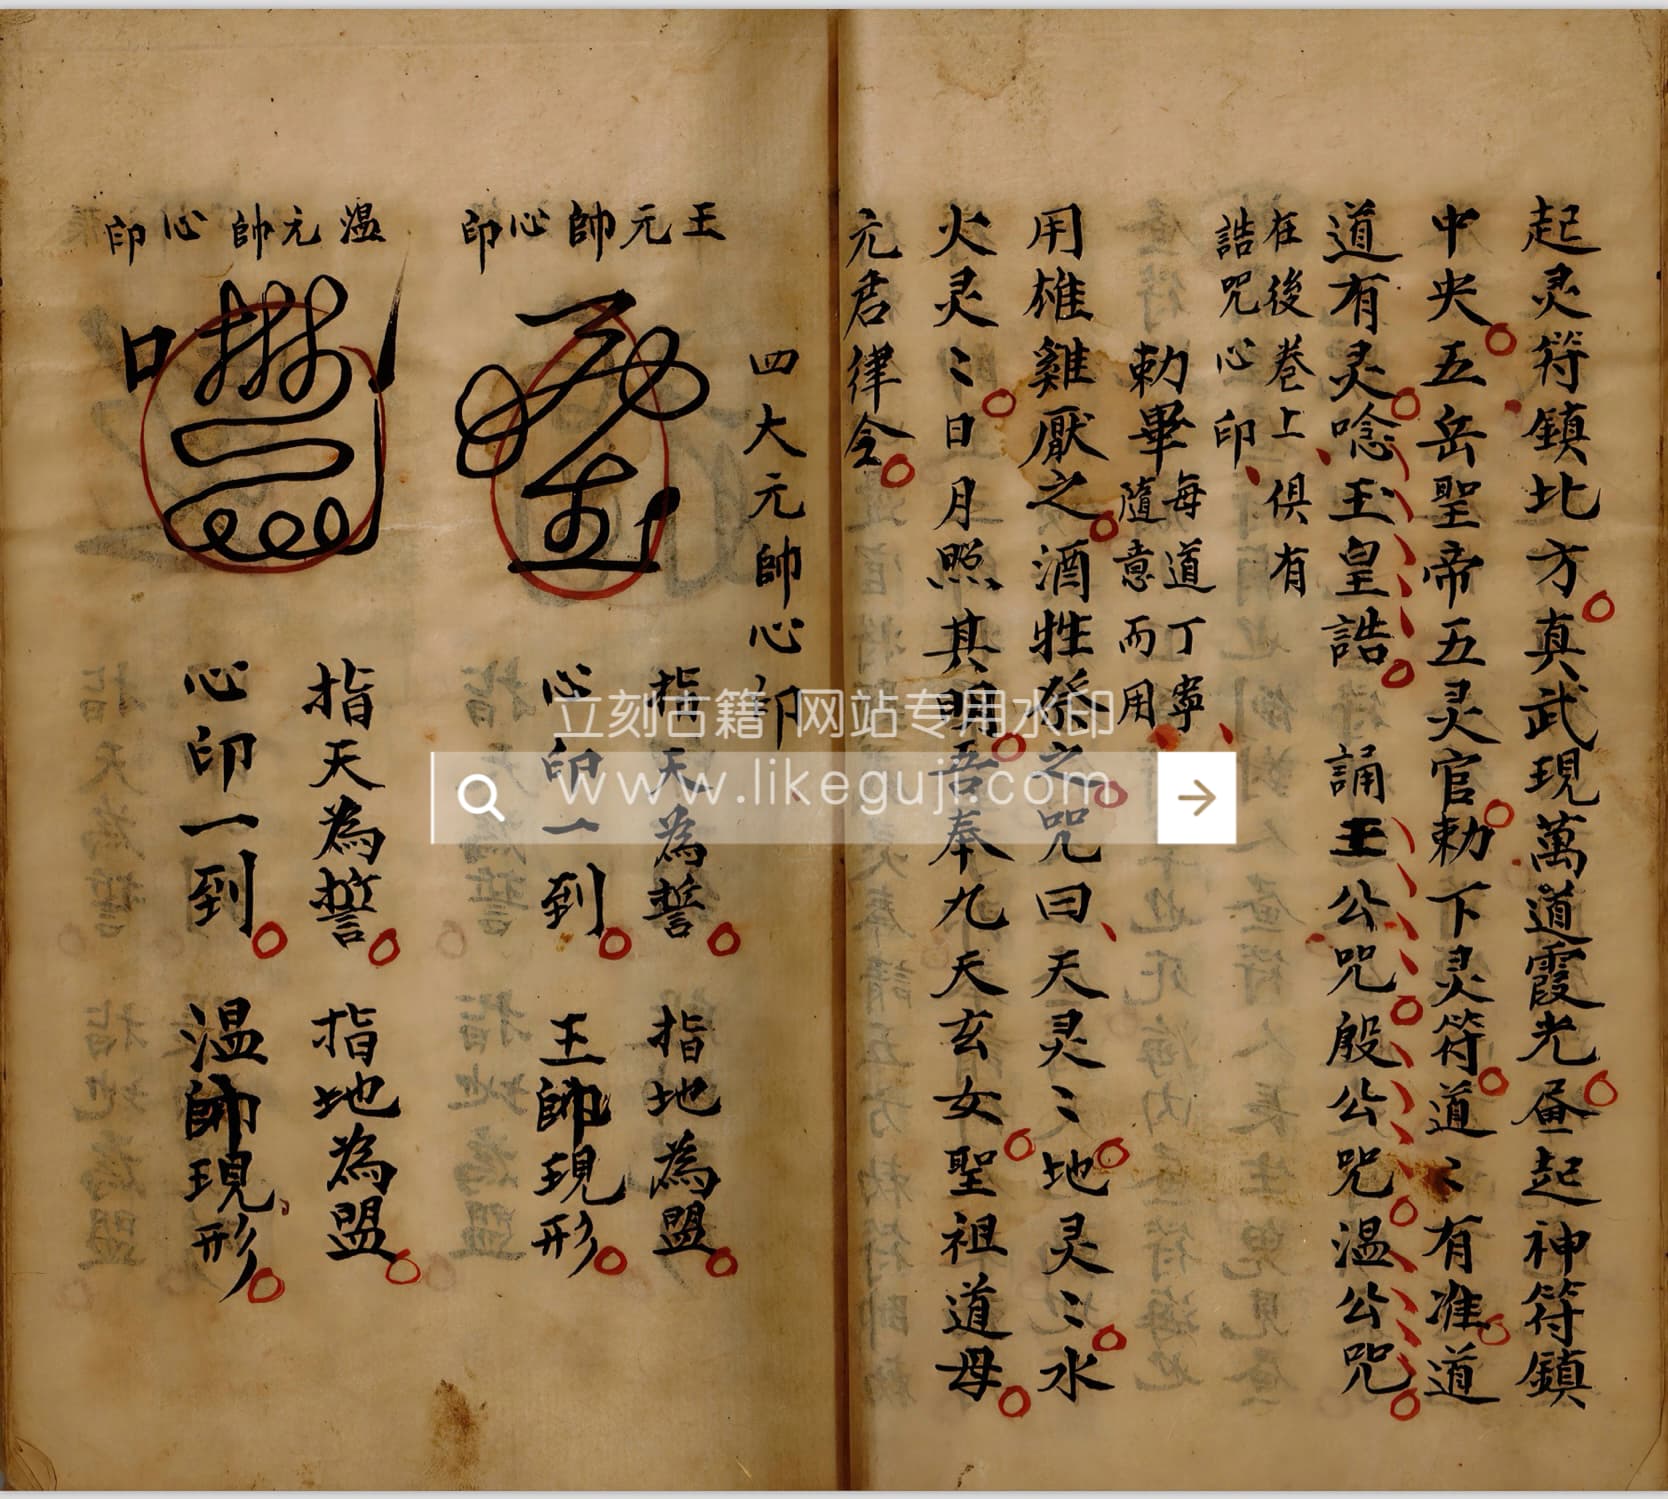 起灵符鎮北方真武現萬道霞光昼起神符鎮
中央五岳聖帝五灵官勅下灵符道〻有准道
道有灵唸玉皇誥 誦王公咒殷公咒温公咒
在後卷上俱有
誥咒心印
勅畢每道丁寧
隨意而用
用雄雞厭之酒牲祭之咒曰天灵〻地灵〻水
火灵〻日月照其明吾奉九天玄女聖祖道母
元君律令
四大元帥心印
王元帥心印
指天為誓 指地為盟
心印一到 王帥現形
溫元帥心印
指天為誓 指地為盟
心印一到 温帥現形
立刻古籍 网站专用水印
www.likeguji.com